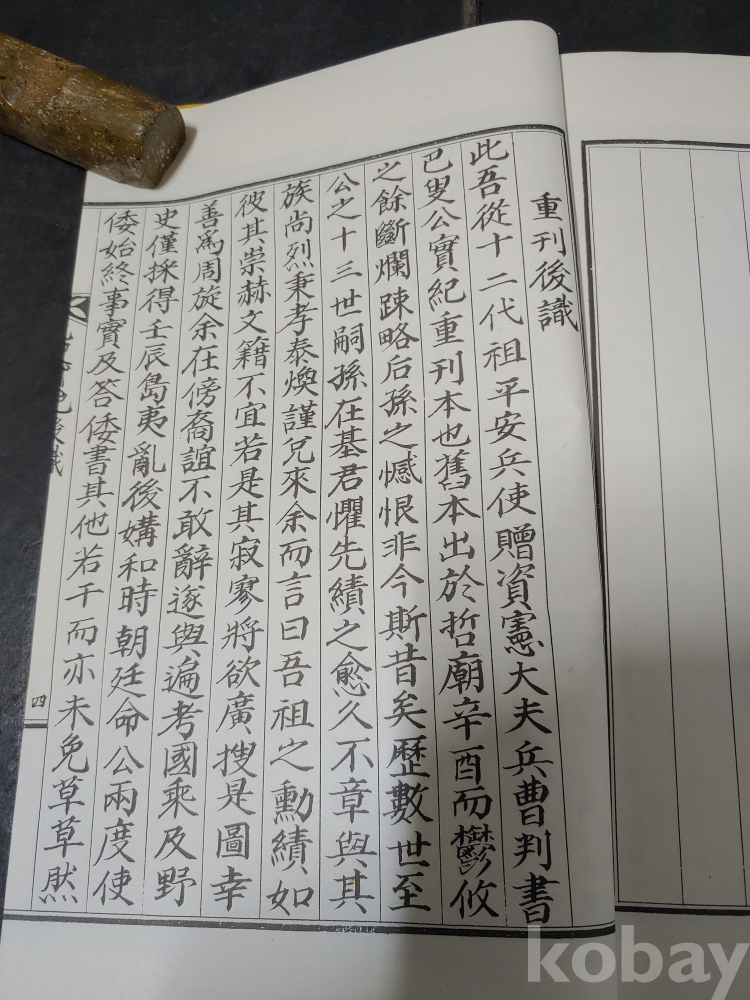 重刊後識
此吾從十二代祖平安兵使贈資憲大夫兵曹判書
巳叟公實紀重刊本也舊本出於哲廟辛酉而鬱攸
之餘斷爛踈略后孫之憾恨非今斯昔矣歷數世至
公之十三世嗣孫在基君懼先績之愈久不章與其
族尚烈秉孝泰煥謹兄來余而言曰吾祖之勳績如
彼其崇赫文籍不宜若是其寂寥將欲廣搜是圖幸
善爲周旋余在傍裔誼不敢辭遂與遍考國乘及野
史僅採得壬辰島夷亂後媾和時朝廷命公兩度使
倭始終事實及答倭書其他若干而亦未免草草然
後識
四
kobay